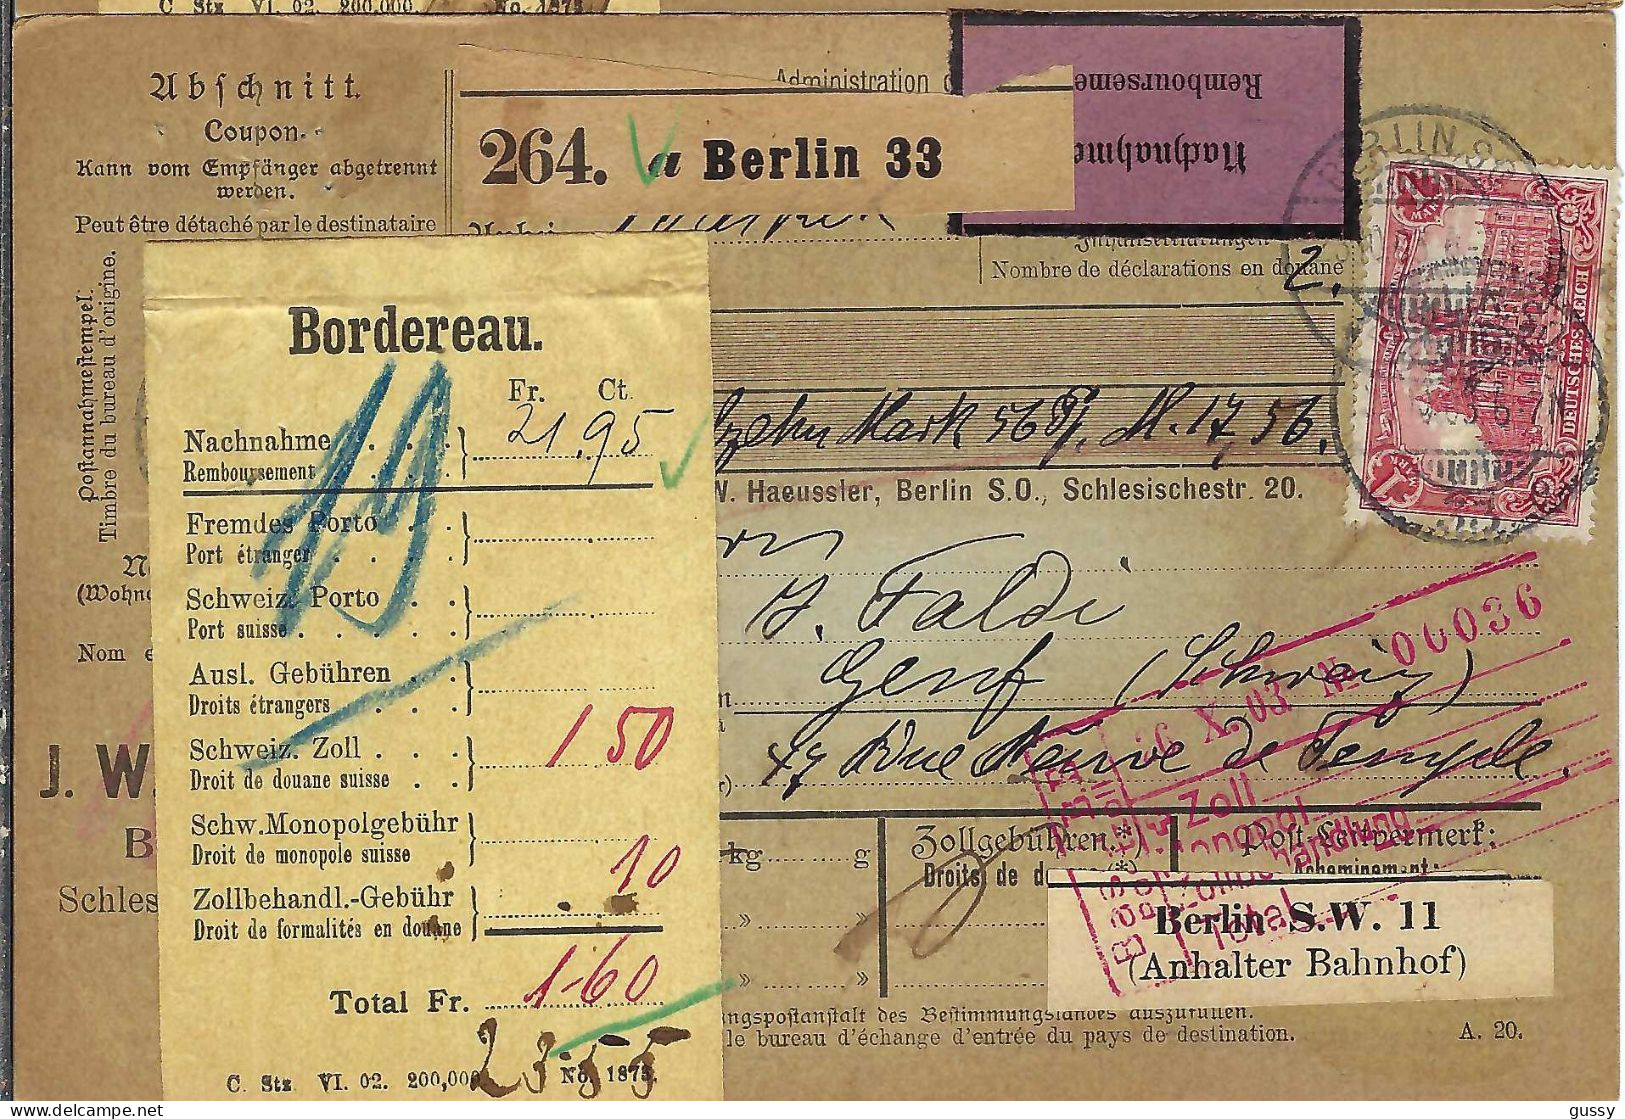 C Stz VI. 02. 200,000. No. 1875.
Abschnitt.
Coupon.
Kann vom Empfänger abgetrennt
werden.
Peut être détaché par le destinataire
Postannahmestempel.
Timbre du bureau d'origine.
(Wohn
Nom e
J. W.
B
Schles
264. a Berlin 33
Administration d
Rembourseme
Nachnahme
Nombre de déclarations en douane
2.
BERLIN S
2 MARK
DEUTSCHES REICH
Bordereau.
19
Fr. Ct.
Nachnahme . . . 21.95
Remboursement
Fremdes Porto . .
Port étranger . . . .
Schweiz. Porto . .
Port suisse . . . . .
Ausl. Gebühren . .
Droits étrangers . . .
Schweiz. Zoll . . . 1 50
Droit de douane suisse . .
Schw. Monopolgebühr
Droit de monopole suisse
Zollbehandl.-Gebühr . 10
Droit de formalités en douane
Total Fr. 1-60
23.55
C. Stz VI. 02. 200,000 No. 1875.
zehn Mark 56 Pf. M. 17.56.
W. Haeussler, Berlin S.O., Schlesischestr. 20.
J. Faldi
Genf (Schweiz)
47 Rue Neuve de Temple.
16 X. 03 № 00036
Zoll
Total
kg g
Zollgebühren.*)
Droits de d
Post-Leitvermerk:
Acheminement:
Berlin S.W. 11
(Anhalter Bahnhof)
ngspostanstalt des Bestimmungslandes auszufüllen.
le bureau d'échange d'entrée du pays de destination.
A. 20.
gussy